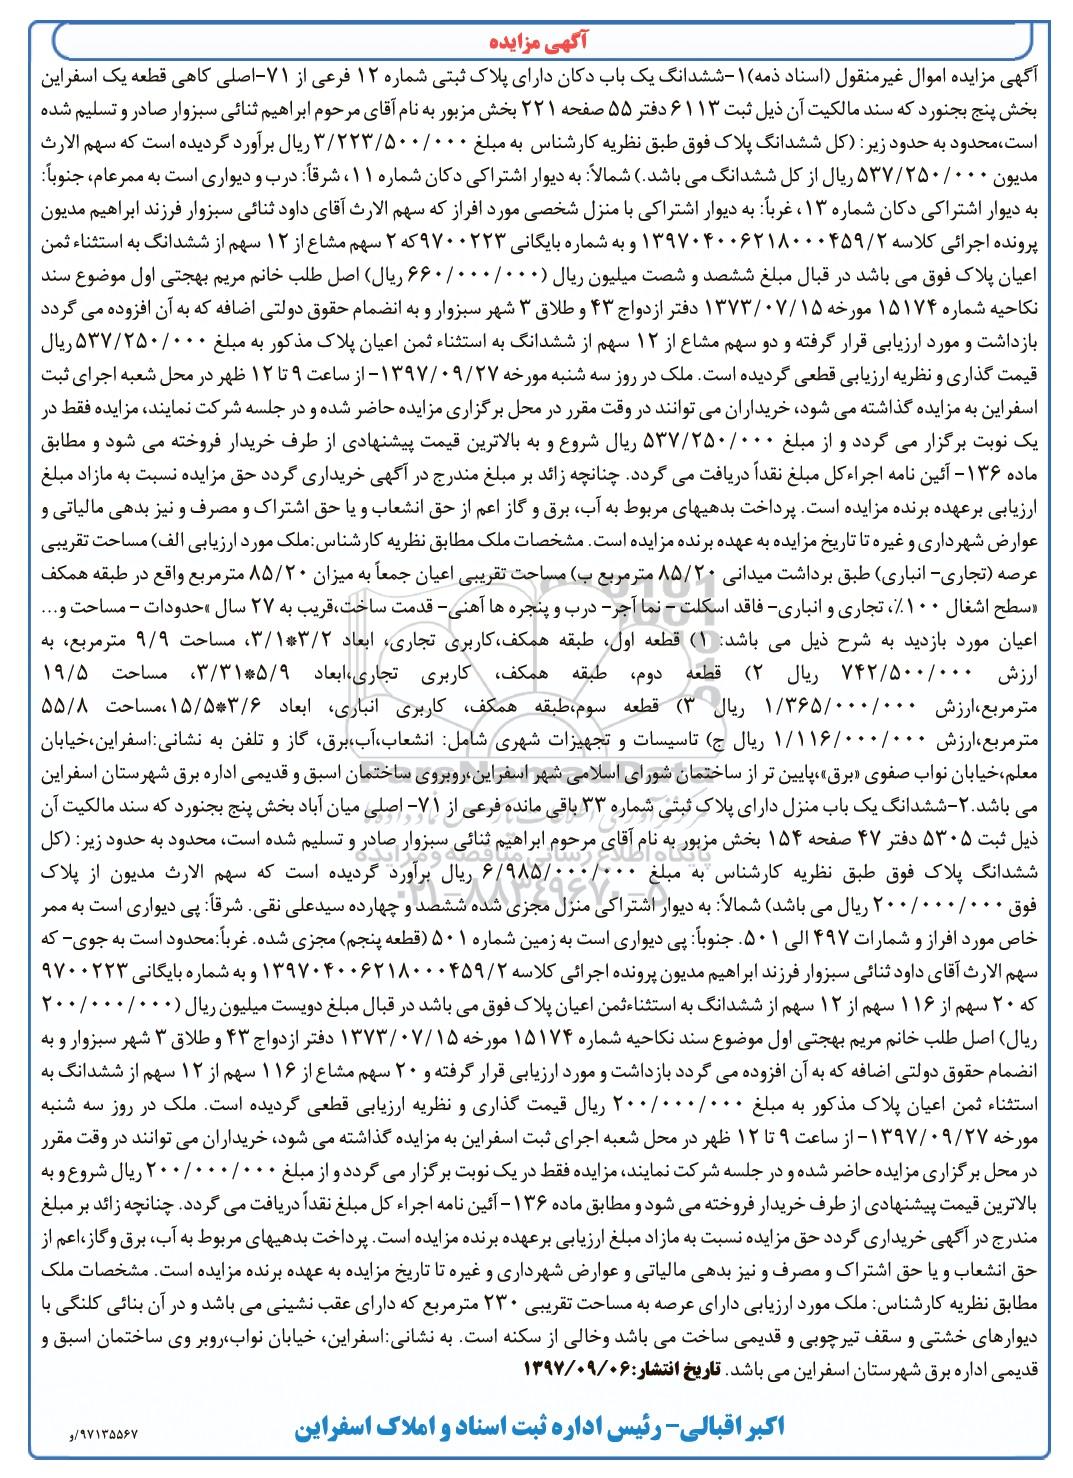 آگهی مزایده
آگهی مزایده اموال غیرمنقول (اسناد ذمه)۱-ششدانگ یک باب دکان دارای پلاک ثبتی شماره ۱۲ فرعی از ۷۱-اصلی کاهی قطعه یک اسفراین
بخش پنج بجنورد که سند مالکیت آن ذیل ثبت ۶۱۱۳ دفتر ۵۵ صفحه ۲۲۱ بخش مزبور به نام آقای مرحوم ابراهیم ثنائی سبزوار صادر و تسلیم شده
است،محدود به حدود زیر: (کل ششدانگ پلاک فوق طبق نظریه کارشناس به مبلغ ۳/۲۲۳/۵۰۰/۰۰۰ ریال برآورد گردیده است که سهم الارث
مدیون ۵۳۷/۲۵۰/۰۰۰ ریال از کل ششدانگ می باشد.) شمالاً: به دیوار اشتراکی دکان شماره ۱۱، شرقاً: درب و دیواری است به ممرعام، جنوباً:
به دیوار اشتراکی دکان شماره ۱۳، غرباً: به دیوار اشتراکی با منزل شخصی مورد افراز که سهم الارث آقای داود ثنائی سبزوار فرزند ابراهیم مدیون
پرونده اجرائی کلاسه ۱۳۹۷۰۴۰۰۶۲۱۸۰۰۰۴۵۹/۲ و به شماره بایگانی ۹۷۰۰۲۲۳که ۲ سهم مشاع از ۱۲ سهم از ششدانگ به استثناء ثمن
اعیان پلاک فوق می باشد در قبال مبلغ ششصد و شصت میلیون ریال (۶۶۰/۰۰۰/۰۰۰ ریال) اصل طلب خانم مریم بهجتی اول موضوع سند
نکاحیه شماره ۱۵۱۷۴ مورخه ۱۳۷۳/۰۷/۱۵ دفتر ازدواج ۴۳ و طلاق ۳ شهر سبزوار و به انضمام حقوق دولتی اضافه که به آن افزوده می گردد
بازداشت و مورد ارزیابی قرار گرفته و دو سهم مشاع از ۱۲ سهم از ششدانگ به استثناء ثمن اعیان پلاک مذکور به مبلغ ۵۳۷/۲۵۰/۰۰۰ ریال
قیمت گذاری و نظریه ارزیابی قطعی گردیده است. ملک در روز سه شنبه مورخه ۱۳۹۷/۰۹/۲۷- از ساعت ۹ تا ۱۲ ظهر در محل شعبه اجرای ثبت
اسفراین به مزایده گذاشته می شود، خریداران می توانند در وقت مقرر در محل برگزاری مزایده حاضر شده و در جلسه شرکت نمایند، مزایده فقط در
یک نوبت برگزار می گردد و از مبلغ ۵۳۷/۲۵۰/۰۰۰ ریال شروع و به بالاترین قیمت پیشنهادی از طرف خریدار فروخته می شود و مطابق
ماده ۱۳۶- آئین نامه اجراءکل مبلغ نقداً دریافت می گردد. چنانچه زائد بر مبلغ مندرج در آگهی خریداری گردد حق مزایده نسبت به مازاد مبلغ
ارزیابی برعهده برنده مزایده است. پرداخت بدهیهای مربوط به آب، برق و گاز اعم از حق انشعاب و یا حق اشتراک و مصرف و نیز بدهی مالیاتی و
عوارض شهرداری و غیره تا تاریخ مزایده به عهده برنده مزایده است. مشخصات ملک مطابق نظریه کارشناس:ملک مورد ارزیابی الف) مساحت تقریبی
عرصه (تجاری- انباری) طبق برداشت میدانی ۸۵/۲۰ مترمربع ب) مساحت تقریبی اعیان جمعاً به میزان ۸۵/۲۰ مترمربع واقع در طبقه همکف
«سطح اشغال ۱۰۰٪، تجاری و انباری- فاقد اسکلت - نما آجر- درب و پنجره ها آهنی- قدمت ساخت،قریب به ۲۷ سال »حدودات - مساحت و...
اعیان مورد بازدید به شرح ذیل می باشد: ۱) قطعه اول، طبقه همکف،کاربری تجاری، ابعاد ۳/۲*۳/۱، مساحت ۹/۹ مترمربع، به
ارزش ۷۴۲/۵۰۰/۰۰۰ ریال ۲) قطعه دوم، طبقه همکف، کاربری تجاری،ابعاد ۵/۹*۳/۳۱، مساحت ۱۹/۵
مترمربع،ارزش ۱/۳۶۵/۰۰۰/۰۰۰ ریال ۳) قطعه سوم،طبقه همکف، کاربری انباری، ابعاد ۳/۶*۱۵/۵،مساحت ۵۵/۸
مترمربع،ارزش ۱/۱۱۶/۰۰۰/۰۰۰ ریال ج) تاسیسات و تجهیزات شهری شامل: انشعاب،آب،برق، گاز و تلفن به نشانی:اسفراین،خیابان
معلم،خیابان نواب صفوی «برق»،پایین تر از ساختمان شورای اسلامی شهر اسفراین،روبروی ساختمان اسبق و قدیمی اداره برق شهرستان اسفراین
می باشد.۲-ششدانگ یک باب منزل دارای پلاک ثبتی شماره ۳۳ باقی مانده فرعی از ۷۱- اصلی میان آباد بخش پنج بجنورد که سند مالکیت آن
ذیل ثبت ۵۳۰۵ دفتر ۴۷ صفحه ۱۵۴ بخش مزبور به نام آقای مرحوم ابراهیم ثنائی سبزوار صادر و تسلیم شده است، محدود به حدود زیر: (کل
ششدانگ پلاک فوق طبق نظریه کارشناس به مبلغ ۶/۹۸۵/۰۰۰/۰۰۰ ریال برآورد گردیده است که سهم الارث مدیون از پلاک
فوق ۲۰۰/۰۰۰/۰۰۰ ریال می باشد) شمالاً: به دیوار اشتراکی منزل مجزی شده ششصد و چهارده سیدعلی نقی. شرقاً: پی دیواری است به ممر
خاص مورد افراز و شمارات ۴۹۷ الی ۵۰۱. جنوباً: پی دیواری است به زمین شماره ۵۰۱ (قطعه پنجم) مجزی شده. غرباً:محدود است به جوی- که
سهم الارث آقای داود ثنائی سبزوار فرزند ابراهیم مدیون پرونده اجرائی کلاسه ۱۳۹۷۰۴۰۰۶۲۱۸۰۰۰۴۵۹/۲ و به شماره بایگانی ۹۷۰۰۲۲۳
که ۲۰ سهم از ۱۱۶ سهم از ۱۲ سهم از ششدانگ به استثناءثمن اعیان پلاک فوق می باشد در قبال مبلغ دویست میلیون ریال (۲۰۰/۰۰۰/۰۰۰
ریال) اصل طلب خانم مریم بهجتی اول موضوع سند نکاحیه شماره ۱۵۱۷۴ مورخه ۱۳۷۳/۰۷/۱۵ دفتر ازدواج ۴۳ و طلاق ۳ شهر سبزوار و به
انضمام حقوق دولتی اضافه که به آن افزوده می گردد بازداشت و مورد ارزیابی قرار گرفته و ۲۰ سهم مشاع از ۱۱۶ سهم از ۱۲ سهم از ششدانگ به
استثناء ثمن اعیان پلاک مذکور به مبلغ ۲۰۰/۰۰۰/۰۰۰ ریال قیمت گذاری و نظریه ارزیابی قطعی گردیده است. ملک در روز سه شنبه
مورخه ۱۳۹۷/۰۹/۲۷- از ساعت ۹ تا ۱۲ ظهر در محل شعبه اجرای ثبت اسفراین به مزایده گذاشته می شود، خریداران می توانند در وقت مقرر
در محل برگزاری مزایده حاضر شده و در جلسه شرکت نمایند، مزایده فقط در یک نوبت برگزار می گردد و از مبلغ ۲۰۰/۰۰۰/۰۰۰ ریال شروع و به
بالاترین قیمت پیشنهادی از طرف خریدار فروخته می شود و مطابق ماده ۱۳۶- آئین نامه اجراء کل مبلغ نقداً دریافت می گردد. چنانچه زائد بر مبلغ
مندرج در آگهی خریداری گردد حق مزایده نسبت به مازاد مبلغ ارزیابی برعهده برنده مزایده است. پرداخت بدهیهای مربوط به آب، برق وگاز،اعم از
حق انشعاب و یا حق اشتراک و مصرف و نیز بدهی مالیاتی و عوارض شهرداری و غیره تا تاریخ مزایده به عهده برنده مزایده است. مشخصات ملک
مطابق نظریه کارشناس: ملک مورد ارزیابی دارای عرصه به مساحت تقریبی ۲۳۰ مترمربع که دارای عقب نشینی می باشد و در آن بنائی کلنگی با
دیوارهای خشتی و سقف تیرچوبی و قدیمی ساخت می باشد وخالی از سکنه است. به نشانی:اسفراین، خیابان نواب،روبر وی ساختمان اسبق و
قدیمی اداره برق شهرستان اسفراین می باشد. تاریخ انتشار:۱۳۹۷/۰۹/۰۶
اکبر اقبالی- رئیس اداره ثبت اسناد و املاک اسفراین
۹۷۱۳۵۵۶۷/و
ParsNamadData
پایگاه اطلاع رسانی مناقصه و مزایده
۰۲۱-۸۸۳۴۹۶۷۰-۵